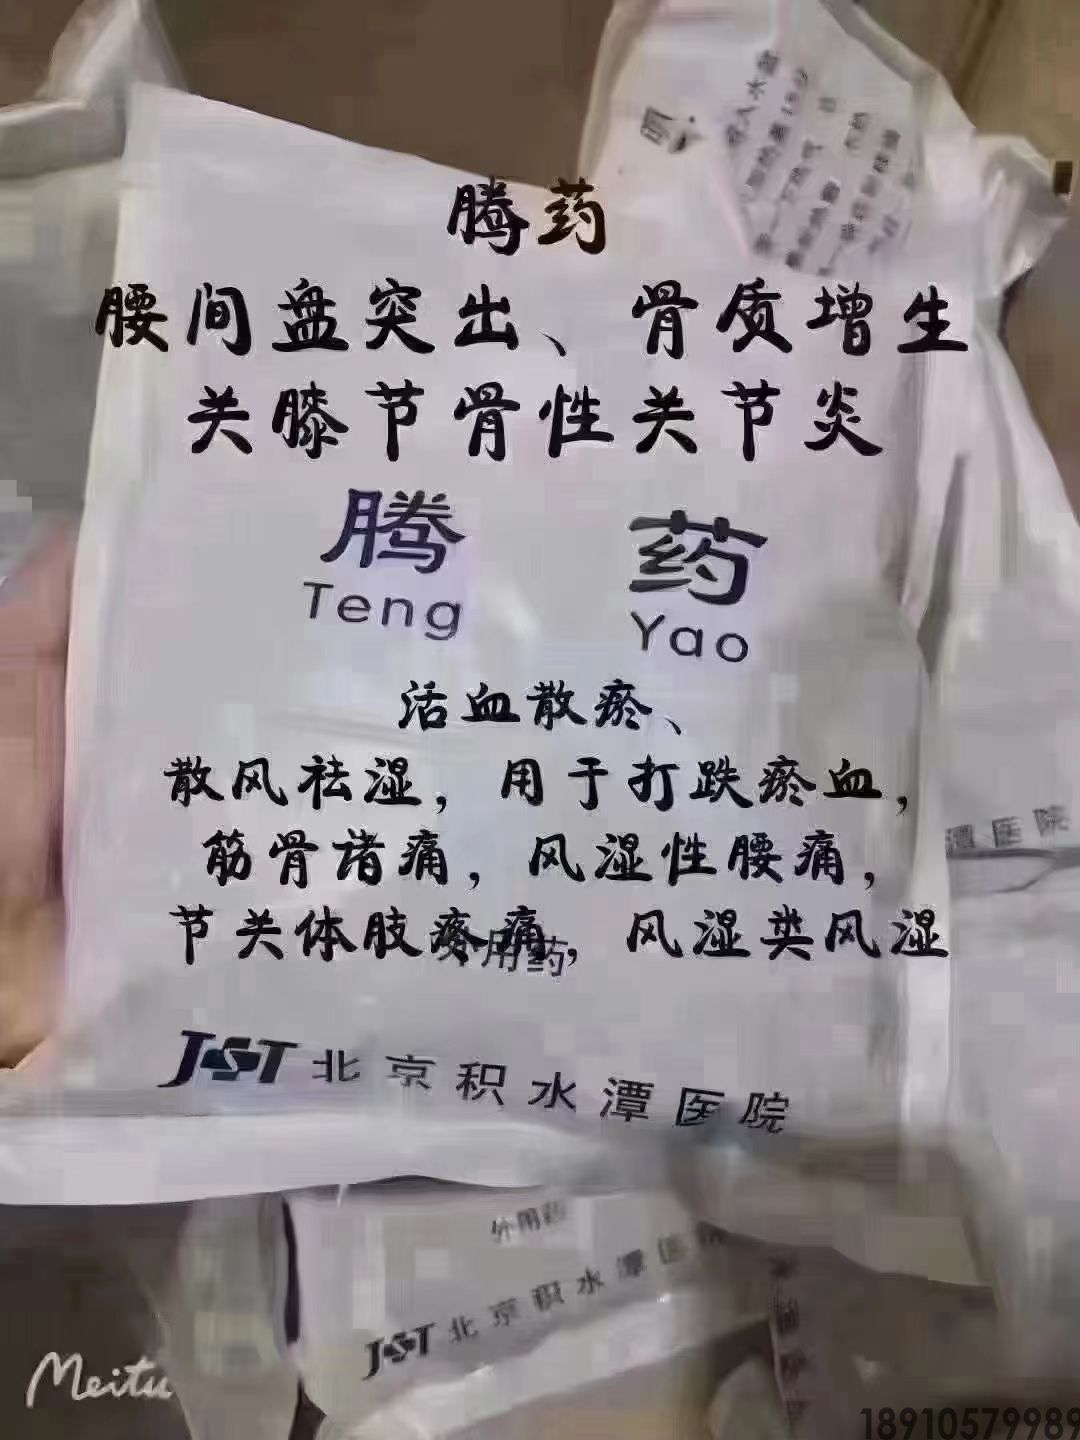 腾药
腰间盘突出、骨质增生
关膝节骨性关节炎
腾 药
Teng Yao
活血散瘀、
散风祛湿，用于打跌瘀血，
筋骨诸痛，风湿性腰痛，
节关体肢疼痛，风湿类风湿
用药
JST 北京积水潭医院
潭医院
外用药
JST 北京积水潭医院
Meitu
18910579989